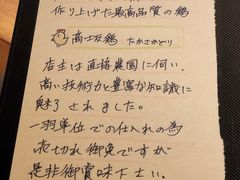 作り上げた最高品質の鶏
高坂鶏 たかさかどり
店主は直接農園に伺い、
高い技術力と豊富な知識に
魅了されました。
一羽単位での仕入れの為
売切れ御免ですが
是非御賞味下さい。